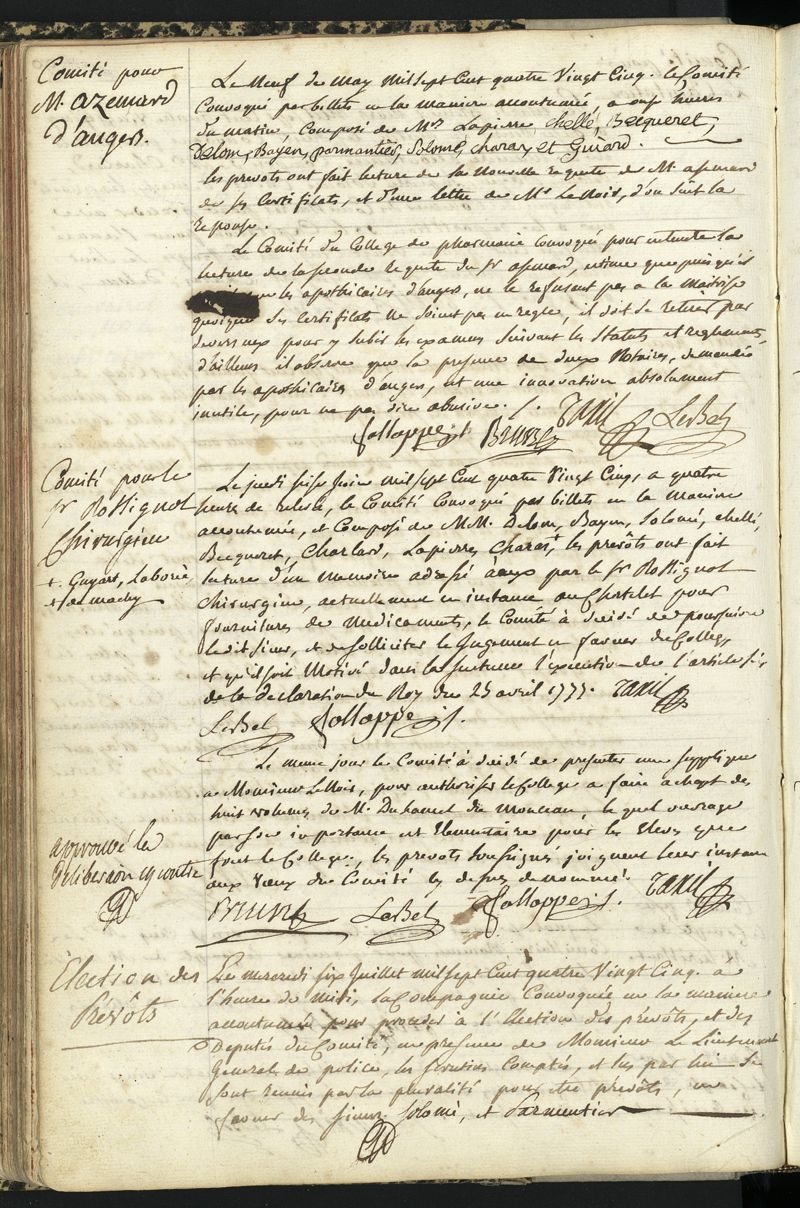 Comité pour
Mr azemard
d'angers.
Le Neuf de may mil sept Cent quatre Vingt Cinq. le Comité
Convoqué par billets en la maniere accoutumée, a onze heures
du matin, Composé de Mrs Lapierre, Chellé, Becqueret,
Delom, Bayen, parmantier, Solomé, charas, et Guiard.
les prevots ont fait lecture de la Nouvelle requete de Mr asemard
de ses Certificats, et d'une lettre de Mr LeNoir, d'ou suit la
reponse.
Le Comité du College de pharmacie Convoqué pour entendre la
lecture de la seconde requete du Sr asemard, estime que puisqu'il
les apothicaires d'angers, ne le refusent pas a la Maitrise
quoique ses Certificats ne soient pas en regle, il doit se retirer par
devers eux pour y subir les examens suivant les Statuts et reglements,
d'ailleurs il observe que la presence de deux Notaires, demandée
par les apothicaires d'angers, est une innovation absolument
inutile, pour ne pas dire abusive. /.
follope j. Brun Taxil LeBel
Comité pour le
Sr Rossignol
Chirurgien
+. Guyart, Laborie
et demachy
Le jeudi seise juin mil sept Cent quatre Vingt Cinq, a quatre
heures de relevée, le Comité Convoqué par billets en la maniere
accoutumée, et Composé de MM. Delom, Bayen, Solomé, chellé,
Becqueret, Charlard, Lapierre, Charas+, les prevôts ont fait
lecture d'un memoire adressé à eux par le Sr Rossignol
chirurgien, actuellement en instance au Chatelet pour
fournitures de Medicaments, le Comité à decidé de poursuivre
le dit sieur, et de solliciter le Jugement en faveur du College
et qu'il soit Motivé dans la sentence l'execution de l'article six
de la declaration du Roy du 25 avril 1777. Taxil
LeBel follope j.
Le meme jour le Comité à decidé de presenter une supplique
a Monsieur LeNoir, pour authoriser le College a faire achapt des
huit volumes de Mr Duhamel du Monceau, lequel ouvrage
par son importance est Elementaire pour les Eleves que
font le College, les prevots soussignés joignent leur instance
aux Vœux du Comité les dits jours denommés. Taxil
Brun LeBel follope j.
approuvé la
deliberaion cy contre
Election des
Prévôts
Le mercredi six Juillet mil sept Cent quatre Vingt Cinq. à
l'heure de midi, la Compagnie Convoquée en la maniere
accoutumée pour proceder à l'Election des prévots, et des
Deputés du Comité, en presence de Monsieur Le Lieutenant
General de police, les scrutins Comptés, et lus par lui se
sont reunis par la pluralité pour etre prevôts, en
faveur des sieurs Solomé, et Parmentier